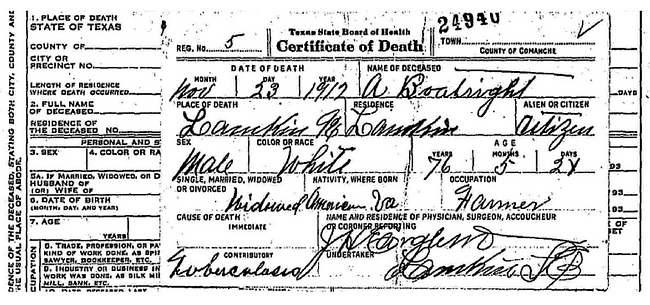 24940
1. PLACE OF DEATH
STATE OF TEXAS
COUNTY OF
CITY OR
PRECINCT NO.
LENGTH OF RESIDENCE
WHERE DEATH OCCURRED
2. FULL NAME
OF DECEASED
RESIDENCE OF
THE DECEASED NO.
PERSONAL AND ST
3. SEX
4. COLOR OR RA
5A. IF MARRIED, WIDOWED, OR D
HUSBAND OF
(OR) WIFE OF
6. DATE OF BIRTH
(MONTH, DAY, AND YEAR)
7. AGE
YEARS
8. TRADE, PROFESSION, OR PA
KIND OF WORK DONE, AS SPIN
SAWYER, BOOKKEEPER, ETC.
9. INDUSTRY OR BUSINESS IN
WORK WAS DONE, AS SILK MI
MILL, BANK, ETC.
OCCUPATION
DENCE OF THE DECEASED, STATING BOTH CITY, COUNTY AND
THE USUAL PLACE OF ABODE.
REG. No. 5
Texas State Board of Health
Certificate of Death
TOWN
COUNTY OF COMANCHE
DATE OF DEATH
NAME OF DECEASED
MONTH DAY YEAR
Nov 23 1912 A Boatright
PLACE OF DEATH RESIDENCE ALIEN OR CITIZEN
Lamkin Lamkin Citizen
SEX COLOR OR RACE AGE
YEARS MONTHS DAYS
Male White 76 5 24
SINGLE, MARRIED, WIDOWED
OR DIVORCED
NATIVITY, WHERE BORN
OCCUPATION
Widowed American Va Farmer
CAUSE OF DEATH
IMMEDIATE
NAME AND RESIDENCE OF PHYSICIAN, SURGEON, ACCOUCHEUR
OR CORONER REPORTING
CONTRIBUTORY
UNDERTAKER
Tuberculosis Lamkin
DAYS
93
93
93
SET